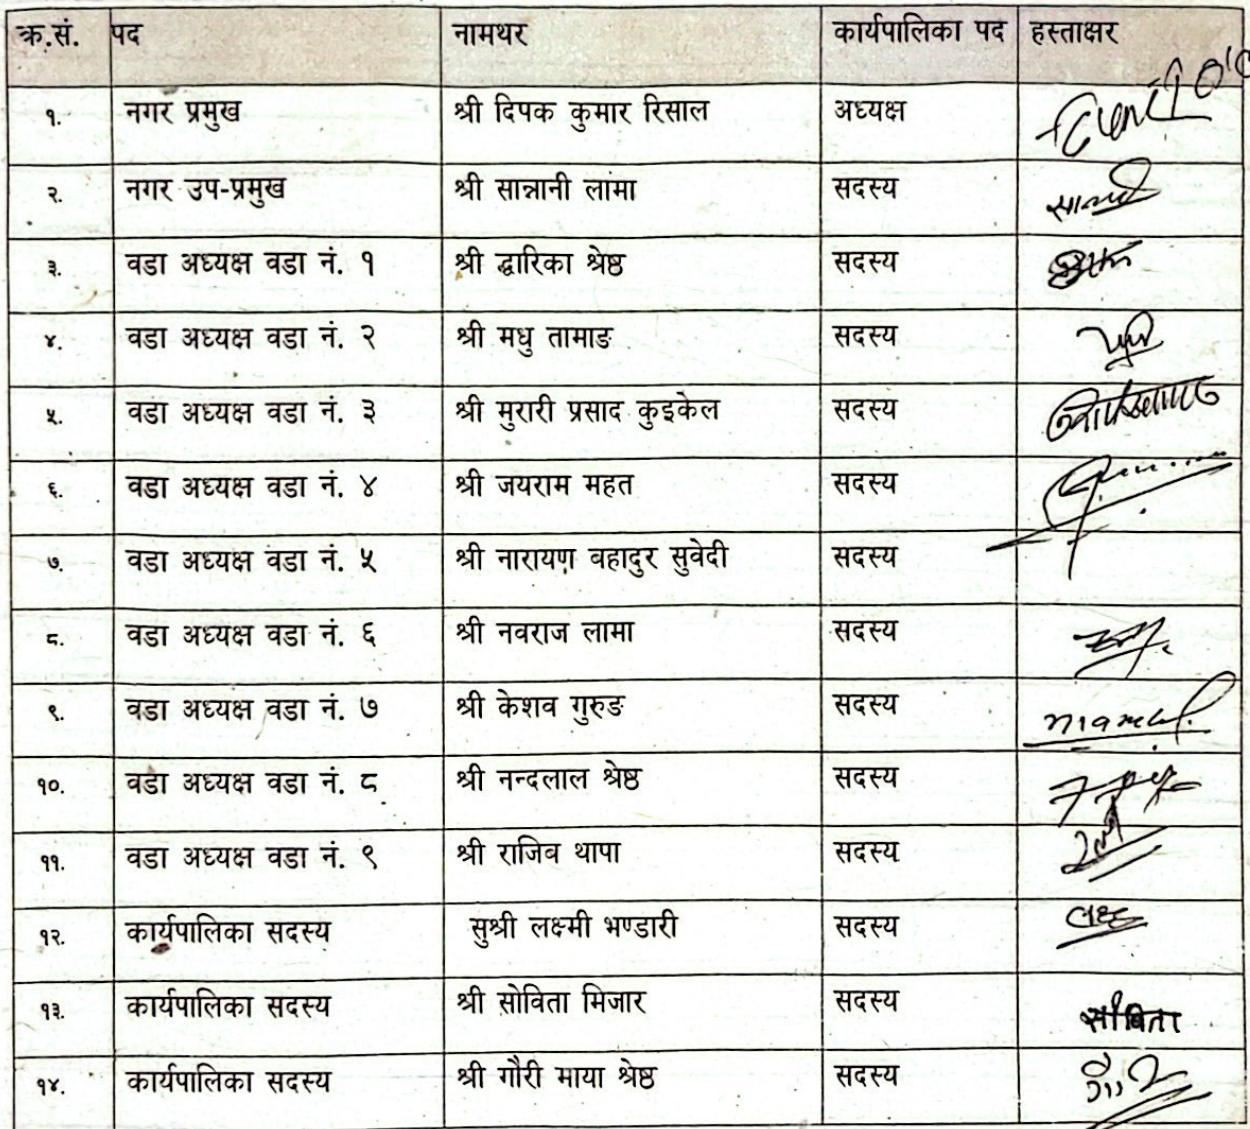 क्र.सं. पद नामथर कार्यपालिका पद हस्ताक्षर
१. नगर प्रमुख श्री दिपक कुमार रिसाल अध्यक्ष
२. नगर उप-प्रमुख श्री सान्नानी लामा सदस्य
३. वडा अध्यक्ष वडा नं. १ श्री द्धारिका श्रेष्ठ सदस्य
४. वडा अध्यक्ष वडा नं. २ श्री मधु तामाङ सदस्य
५. वडा अध्यक्ष वडा नं. ३ श्री मुरारी प्रसाद कुइकेल सदस्य
६. वडा अध्यक्ष वडा नं. ४ श्री जयराम महत सदस्य
७. वडा अध्यक्ष वडा नं. ५ श्री नारायण वहादुर सुवेदी सदस्य
८. वडा अध्यक्ष वडा नं. ६ श्री नवराज लामा सदस्य
९. वडा अध्यक्ष वडा नं. ७ श्री केशव गुरुङ सदस्य
१०. वडा अध्यक्ष वडा नं. ८ श्री नन्दलाल श्रेष्ठ सदस्य
११. वडा अध्यक्ष वडा नं. ९ श्री राजिव थापा सदस्य
१२. कार्यपालिका सदस्य सुश्री लक्ष्मी भण्डारी सदस्य
१३. कार्यपालिका सदस्य श्री सोविता मिजार सदस्य सोबिता
१४. कार्यपालिका सदस्य श्री गौरी माया श्रेष्ठ सदस्य